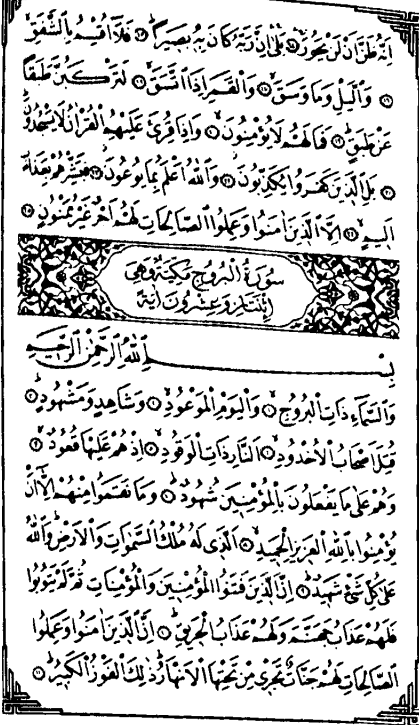 اِنَّهُ ظَنَّ اَنْ لَنْ يَحُورَ ۝١٤ بَلٰى اِنَّ رَبَّهُ كَانَ بِهِ بَصِيرًا ۝١٥ فَلَا اُقْسِمُ بِالشَّفَقِ
۝١٦ وَالَّيْلِ وَمَا وَسَقَ ۝١٧ وَالْقَمَرِ اِذَا اتَّسَقَ ۝١٨ لَتَرْكَبُنَّ طَبَقًا
عَنْ طَبَقٍ ۝١٩ فَمَا لَهُمْ لَا يُؤْمِنُونَ ۝٢٠ وَاِذَا قُرِئَ عَلَيْهِمُ الْقُرْاٰنُ لَا يَسْجُدُونَ
۝٢١ بَلِ الَّذِينَ كَفَرُوا يُكَذِّبُونَ ۝٢٢ وَاللّٰهُ اَعْلَمُ بِمَا يُوعُونَ ۝٢٣ فَبَشِّرْهُمْ بِعَذَابٍ
اَلِيمٍ ۝٢٤ اِلَّا الَّذِينَ اٰمَنُوا وَعَمِلُوا الصَّالِحَاتِ لَهُمْ اَجْرٌ غَيْرُ مَمْنُونٍ ۝٢٥
سُورَةُ الْبُرُوجِ مَكِّيَّةٌ وَهِيَ
اِثْنَتَانِ وَعِشْرُونَ اٰيَةً
بِسْمِ اللّٰهِ الرَّحْمٰنِ الرَّحِيمِ
وَالسَّمَاءِ ذَاتِ الْبُرُوجِ ۝١ وَالْيَوْمِ الْمَوْعُودِ ۝٢ وَشَاهِدٍ وَمَشْهُودٍ ۝٣
قُتِلَ اَصْحَابُ الْاُخْدُودِ ۝٤ اَلنَّارِ ذَاتِ الْوَقُودِ ۝٥ اِذْ هُمْ عَلَيْهَا قُعُودٌ ۝٦
وَهُمْ عَلٰى مَا يَفْعَلُونَ بِالْمُؤْمِنِينَ شُهُودٌ ۝٧ وَمَا نَقَمُوا مِنْهُمْ اِلَّا اَنْ
يُؤْمِنُوا بِاللّٰهِ الْعَزِيزِ الْحَمِيدِ ۝٨ اَلَّذِي لَهُ مُلْكُ السَّمٰوَاتِ وَالْاَرْضِ وَاللّٰهُ
عَلٰى كُلِّ شَيْءٍ شَهِيدٌ ۝٩ اِنَّ الَّذِينَ فَتَنُوا الْمُؤْمِنِينَ وَالْمُؤْمِنَاتِ ثُمَّ لَمْ يَتُوبُوا
فَلَهُمْ عَذَابُ جَهَنَّمَ وَلَهُمْ عَذَابُ الْحَرِيقِ ۝١٠ اِنَّ الَّذِينَ اٰمَنُوا وَعَمِلُوا
الصَّالِحَاتِ لَهُمْ جَنَّاتٌ تَجْرِي مِنْ تَحْتِهَا الْاَنْهَارُ ذٰلِكَ الْفَوْزُ الْكَبِيرُ ۝١١